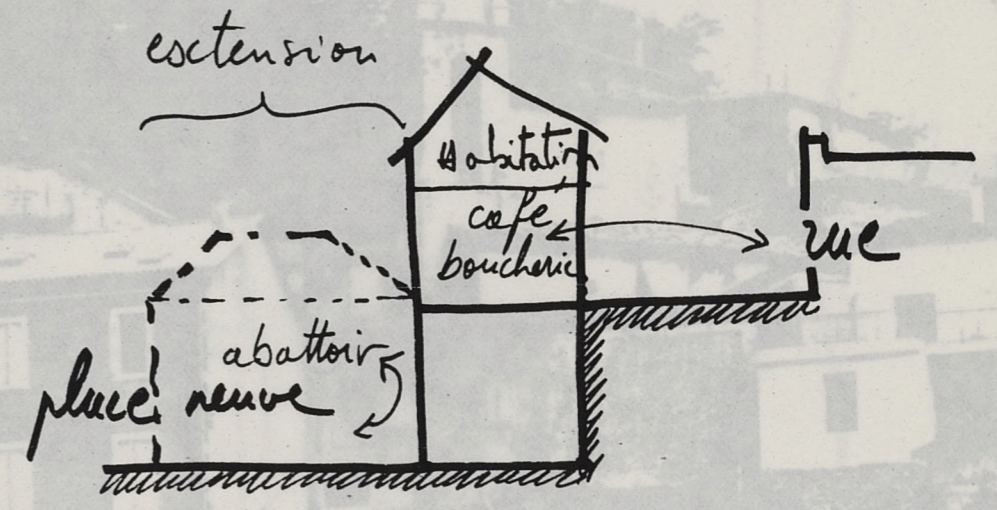 extension
Habitation
café
boucherie
rue
abattoir
place neuve